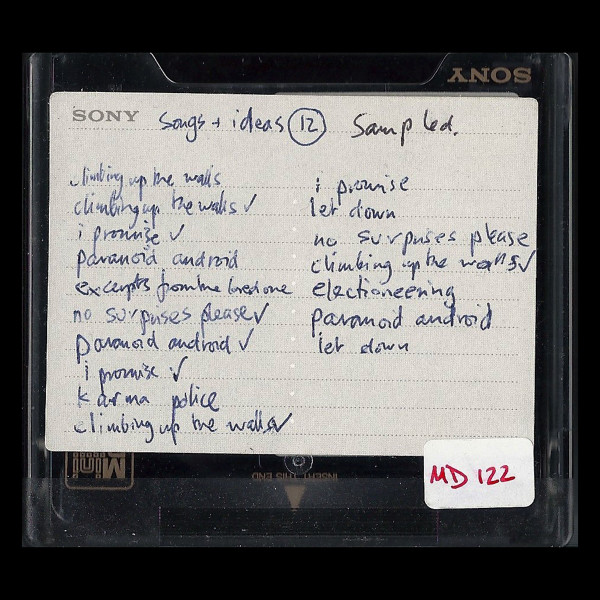 SONY
SONY songs + ideas 12 Sampled.
climbing up the walls
climbing up the walls ✓
i promise ✓
paranoid android
excerpts from the
no surprises please ✓
paranoid android ✓
i promise ✓
karma police
climbing up the walls ✓
i promise
let down
no surprises please
climbing up the walls ✓
electioneering
paranoid android
let down
Mini
INSERT THIS END
MD 122